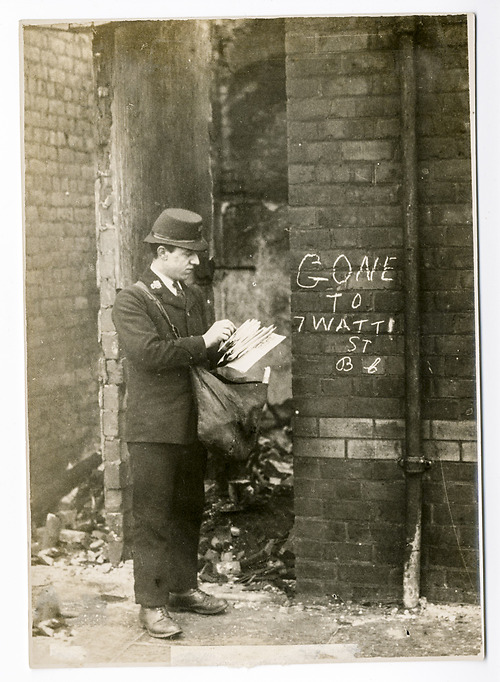 GONE
TO
7 WATTI
ST
B 6